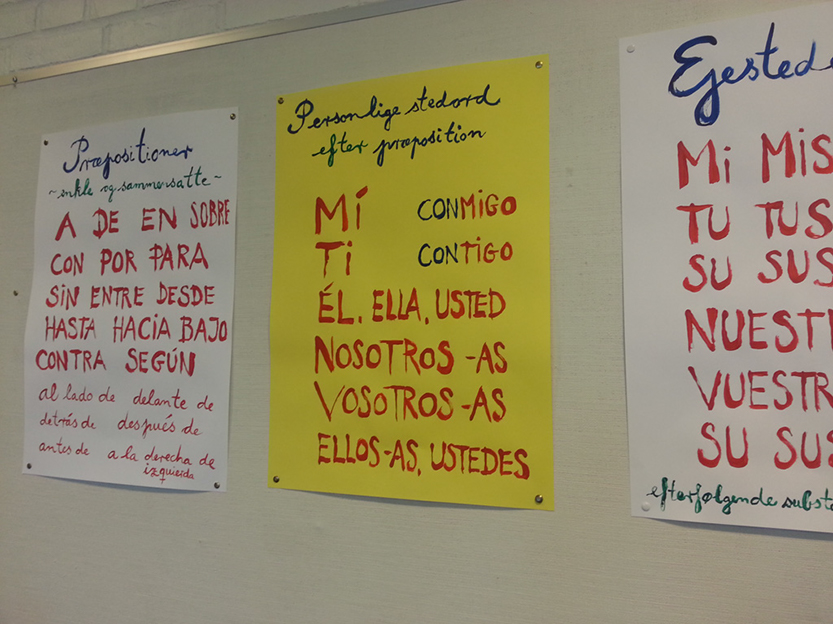 Præpositioner
~enkle og sammensatte~
A DE EN SOBRE
CON POR PARA
SIN ENTRE DESDE
HASTA HACIA BAJO
CONTRA SEGÚN
al lado de delante de
detrás de después de
antes de a la derecha de
izquierda
Personlige stedord
efter præposition
MÍ CONMIGO
TI CONTIGO
ÉL, ELLA, USTED
NOSOTROS -AS
VOSOTROS -AS
ELLOS-AS, USTEDES
Ejestedo
Mi MIS
TU TUS
SU SUS
NUESTR
VUESTR
SU SUS
efterfølgende substa